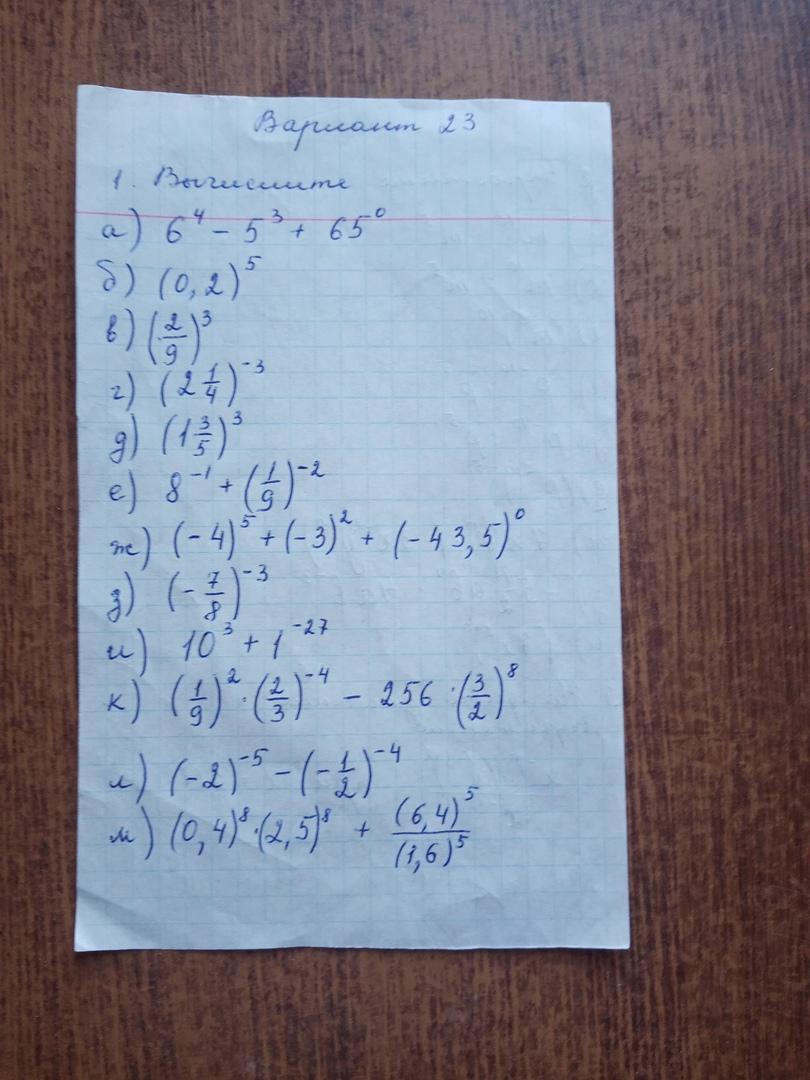 Вариант 23
1. Вычислите
а) 6⁴ - 5³ + 65⁰
б) (0,2)⁵
в) (2/9)³
г) (2 1/4)⁻³
д) (1 3/5)³
е) 8⁻¹ + (1/9)⁻²
ж) (-4)⁵ + (-3)² + (-43,5)⁰
з) (-7/8)⁻³
и) 10³ + 1⁻²⁷
к) (1/9)² · (2/3)⁻⁴ - 256 · (3/2)⁸
л) (-2)⁻⁵ - (-1/2)⁻⁴
м) (0,4)⁸ · (2,5)⁸ + (6,4)⁵/(1,6)⁵